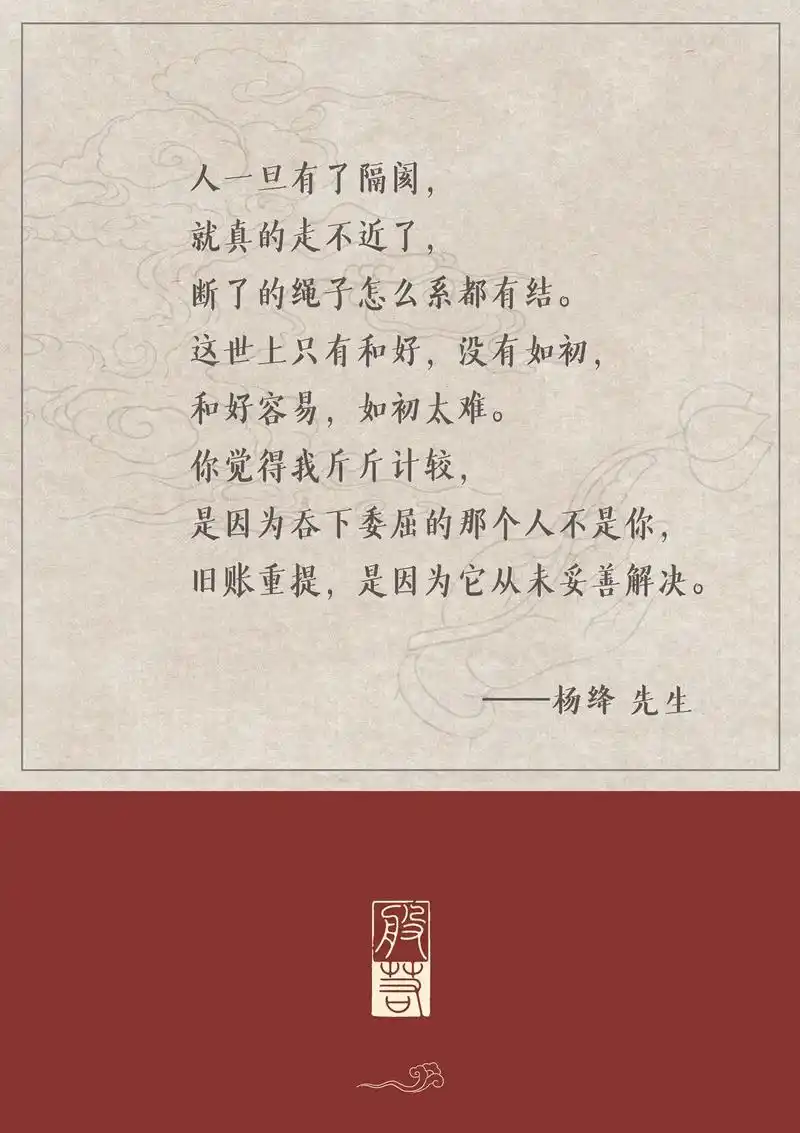 人一旦有了隔阂，
就真的走不近了，
断了的绳子怎么系都有结。
这世上只有和好，没有如初，
和好容易，如初太难。
你觉得我斤斤计较，
是因为吞下委屈的那个人不是你，
旧账重提，是因为它从未妥善解决。
——杨绛 先生
般若